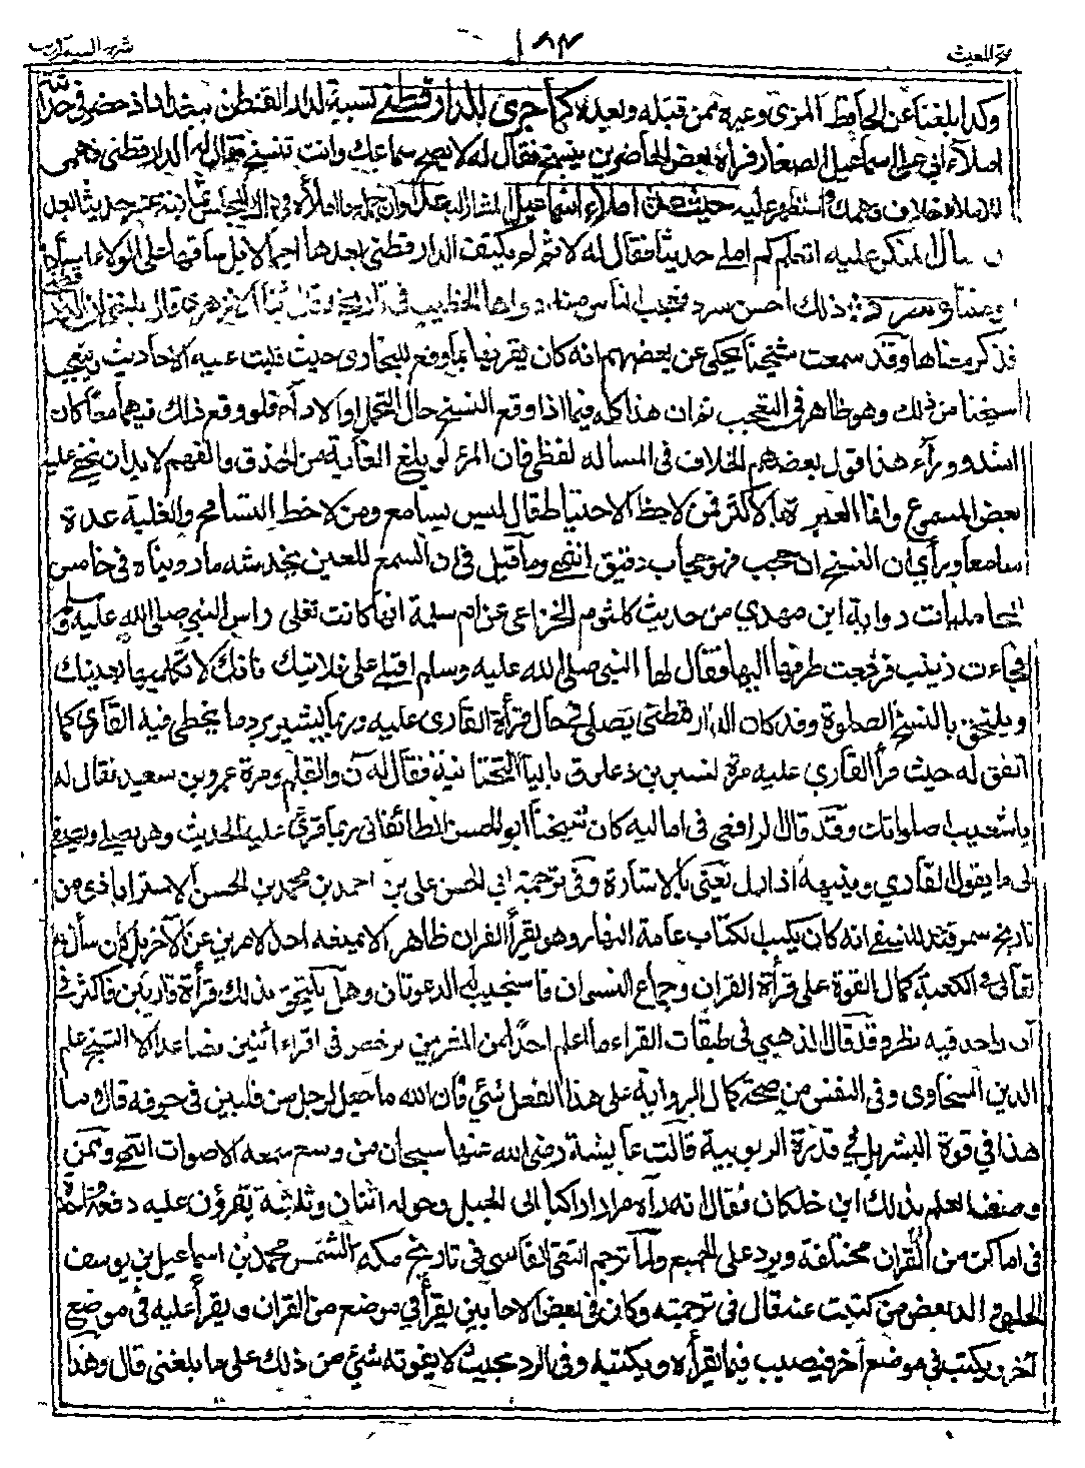 فتح المغيث
١٨٣
وكذا بلغنا عن الحافظ المزي وغيره ممن قبله وبعده كما جرى للدارقطني نسبة لدار القطن ببغداد اذ حضر في حداثته
املاء ابي علي اسماعيل الصفار فرآه بعض الحاضرين ينسخ فقال له لا يصح سماعك وانت تنسخ فقال له الدارقطني فهمي
للاملاء خلاف فهمك واستظهر عليه حيث عد املاء اسماعيل المشار اليه عدا وان جملة ما املاه في ذاك المجلس ثمانية عشر حديثا بعد
سأل المنكر عليه اتعلم كم املى حديثا فقال له لا
ذلك احسن سرد فعجب الناس منه رواها الخطيب في تاريخه
فذكر معناها وقد سمعت شيخنا يحكي عن بعضهم انه كان يقرنها بما وقع للبخاري حيث قلبت عليه الاحاديث ويتعجب
شيخنا من ذلك وهو ظاهر في التعجب ثم ان هذا كله فيما اذا وقع النسخ حال التحمل او الاداء فلو وقع ذلك فيهما معا كان
اشد ووراء هذا قول بعضهم الخلاف في المسألة لفظي فان المرء لو بلغ الغاية من الحذق والفهم لا بد ان يخفى عليه
بعض المسموع وانما العبرة بالاكثر فمن لاحظ الاحتياط قال ليس بسامع ومن لاحظ التسامح والغلبة عده
سامعا ورأى ان النسخ ان حجب فهو حجاب دقيق انتهى وما قيل في ان السمع للعين يخدشه ما رويناه في خامس
المحامليات رواية ابن مهدي من حديث كلثوم الخزاعي عن ام سلمة انها كانت تفلي راس النبي صلى الله عليه وسلم
فجاءت زينب فرفعت طرفها اليها فقال لها النبي صلى الله عليه وسلم اقبلي على فلايتك فانك لا تكلميها بعينك
ويلتحق بالنسخ الصلوة وقد كان الدارقطني يصلي في حال قرأة القاري عليه وربما يشير برد ما يخطئ فيه القاري كما
اتفق له حيث قرأ القاري عليه مرة نسير بن ذعلوق بالياء التحتانية فقال له ن والقلم ومرة عمرو بن سعيد فقال له
يا شعيب اصلواتك وقد قال الرافعي في اماليه كان شيخنا ابو الحسن الطالقاني ربما قرئ عليه الحديث وهو يصلي ويصغي
الى ما يقول القاري وينبهه اذا زل يعني بالاشارة وفي ترجمة ابي الحسن علي بن احمد بن محمد بن الحسن الاستراباذي من
تاريخ سمرقند للنسفي انه كان يكتب الكتاب عامة النهار وهو يقرأ القران ظاهرا لا يمنعه احد الامرين عن الآخر بل كان سأل الله
تعالى في الكعبة كمال القوة على قرأة القران وجماع النسوان فاستجيب له الدعوتان وهل يلتحق بذلك قرأة قاريين فاكثر في
آن واحد فيه نظر وقد قال الذهبي في طبقات القراء ما اعلم احدا من المقرئين ترخص في اقراء اثنين فصاعدا الا الشيخ علم
الدين السخاوي وفي النفس من صحة كمال الرواية على هذا الفعل شئ فان الله ما جعل لرجل من قلبين في جوفه قال وما
هذا في قوة البشر بل في قدرة الربوبية قالت عايشة رضي الله عنها سبحان من وسع سمعه الاصوات انتهى وممن
وصف العلم بذلك ابن خلكان فقال انه رآه مرارا راكبا الى الجبل وحوله اثنان وثلاثة يقرؤن عليه دفعة واحدة
في اماكن من القران مختلفة ويرد على الجميع ولما ترجم التقي الفاسي في تاريخ مكة الشمس محمد بن اسماعيل بن يوسف
الحلبي والد بعض من كتبت عنه قال في ترجمته وكان في بعض الاحايين يقرأ في موضع من القران ويقرأ عليه في موضع
آخر ويكتب في موضع آخر فيصيب فيما يقرأه ويكتبه وفي الرد بحيث لا يفوته شئ من ذلك على ما بلغني قال وهذا